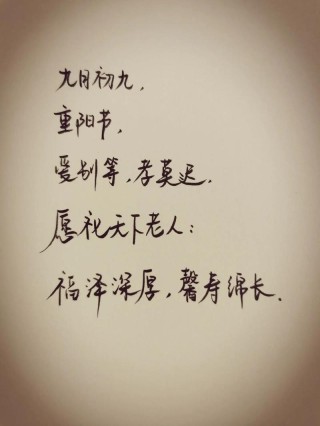 九月初九，
重阳节，
爱别等，孝莫迟.
愿祝天下老人：
福泽深厚，馨寿绵长.